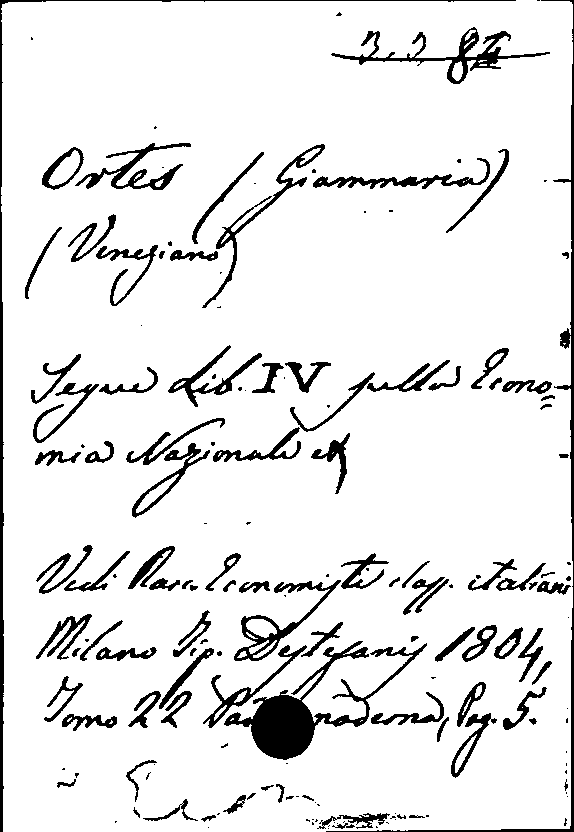 3.3 84
Ortes (Giammaria)
(Veneziano)
Segue Lib. IV sulla Econo=
mia Nazionale
Vedi Racc. Economisti class. italiani
Milano Tip. Destefanis 1804,
Tomo 22 moderna, Pag. 5.
Econ